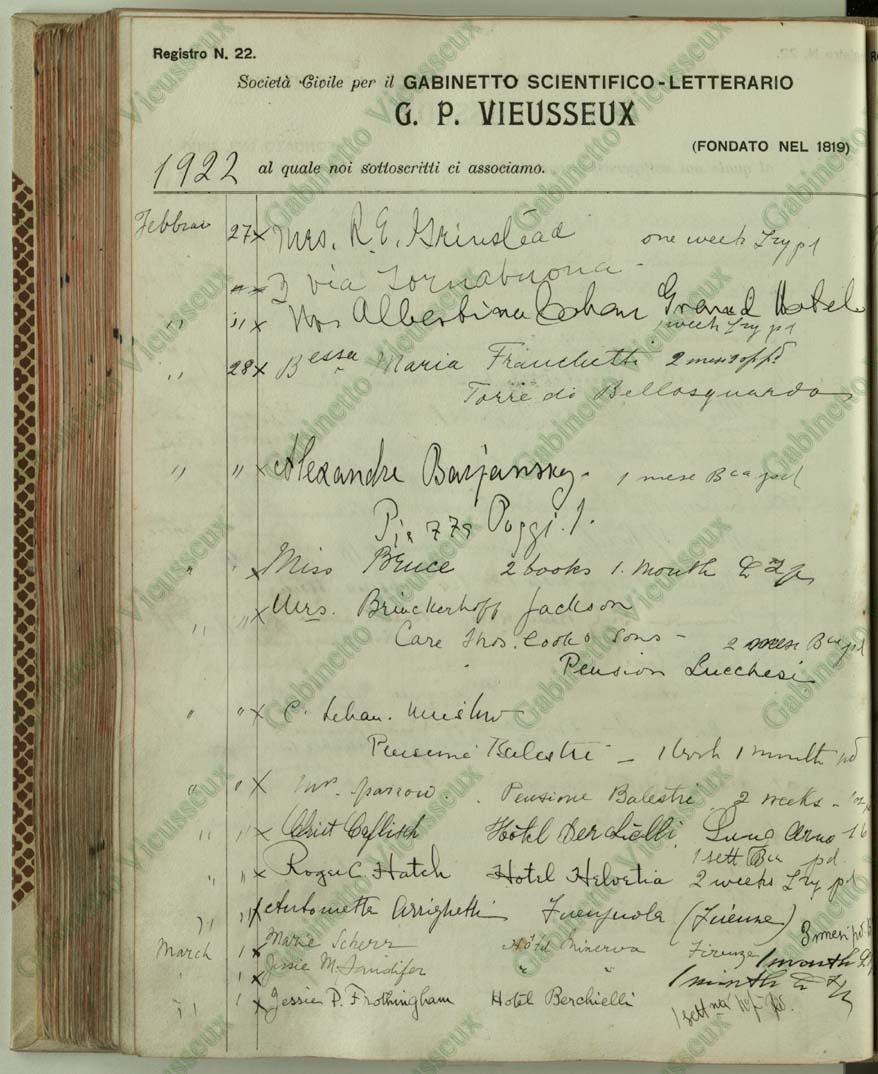 Registro N. 22.
Società Civile per il GABINETTO SCIENTIFICO-LETTERARIO
G. P. VIEUSSEUX
(FONDATO NEL 1819)
1922 al quale noi sottoscritti ci associamo.
Febbraio 27 x Mrs. R. E. Grinstead one week
3 via Tornabuona
" " x Mrs Albertina Cohan Grand Hotel
1 week
" 28 x Bssa Maria Franchetti 2 mesi
Torre di Bellosguardo
" " x Alexandre Barjansky - 1 mese Bca pd
Piazza Poggi. 1.
" " x Miss Bruce 2 books 1. month
" " x Mrs. Brinckerhoff Jackson
Care Thos. Cook & Sons - 2 mesi Bca pd
Pension Lucchesi
" " x C.
Pensione Balestri - 1 book 1 month pd
" " x Pensione Balestri 2 weeks -
" " x Christ Caflisch Hôtel Berchielli Lung Arno 16
1 sett Bca pd.
" " x Roger C. Hatch Hotel Helvetia 2 weeks pd
" " x Antonietta Arrighetti (Firenze)
3 mesi pd
March 1 x Marie Scherr Hôtel Minerva Firenze 1 month
" 1 x Jessie M. " " 1 month
" 1 x Jessie P. Frothingham Hotel Berchielli
1 settna pd.